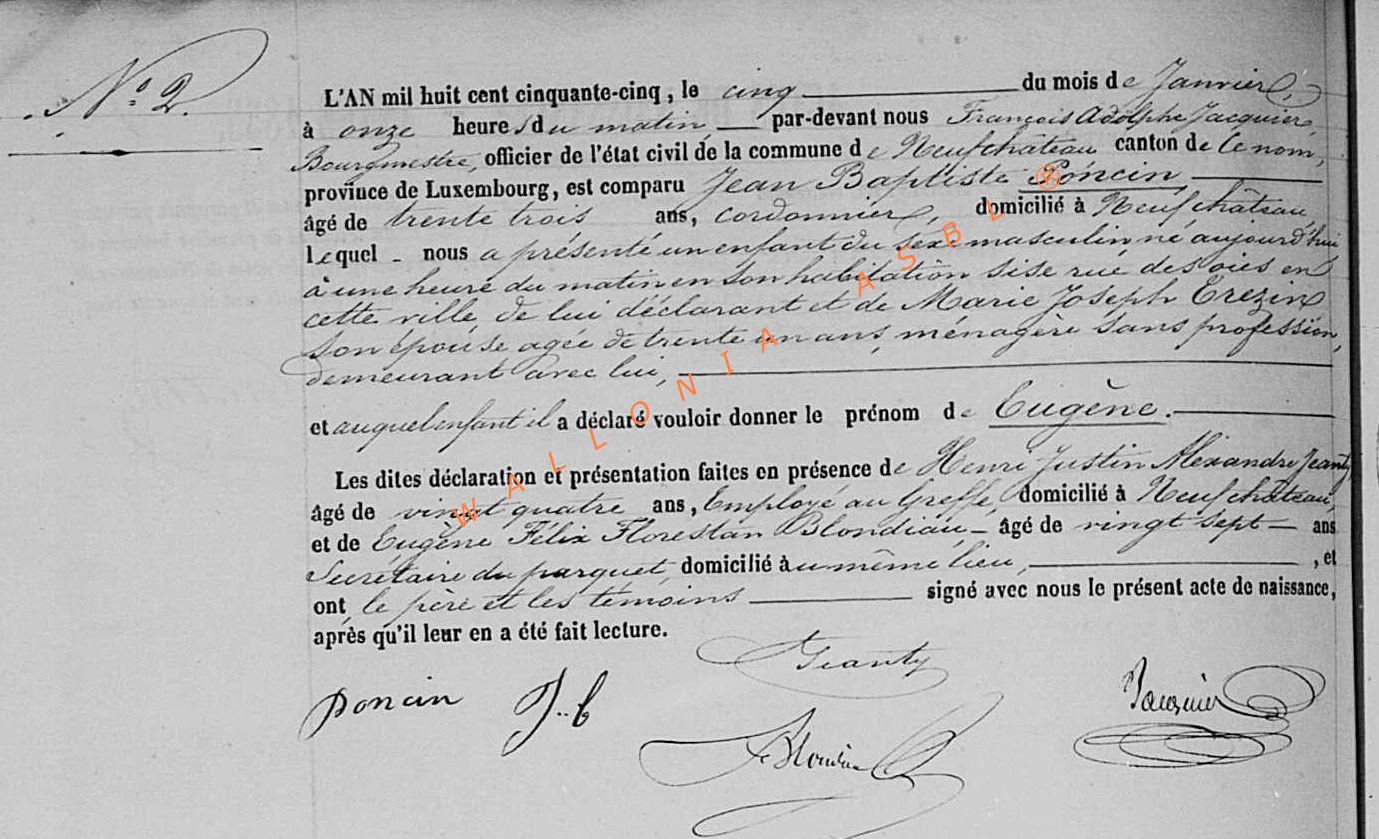 N° 2.
L'AN mil huit cent cinquante-cinq, le cinq du mois de Janvier,
à onze heures du matin, par-devant nous François Adolphe Jacquier,
Bourgmestre, officier de l'état civil de la commune de Neufchâteau canton de ce nom,
province de Luxembourg, est comparu Jean Baptiste Poncin,
âgé de trente trois ans, cordonnier, domicilié à Neufchâteau,
lequel nous a présenté un enfant du sexe masculin né aujourd'hui
à une heure du matin en son habitation sise rue des oies en
cette ville de lui déclarant et de Marie Joseph Erezin
son épouse agée de trente un ans, ménagère sans profession,
demeurant avec lui,
et auquel enfant il a déclaré vouloir donner le prénom de Eugène.
Les dites déclaration et présentation faites en présence de Henri Justin Alexandre Jeanty
âgé de vingt quatre ans, Employé au Greffe, domicilié à Neufchâteau,
et de Eugène Félix Florestan Blondiau - âgé de vingt sept - ans
Secrétaire du parquet, domicilié au même lieu, , et
ont le père et les témoins signé avec nous le présent acte de naissance,
après qu'il leur en a été fait lecture.
Jeanty
Poncin J..b
Jacquier
Blondiau
WALLONIA ASBL ®